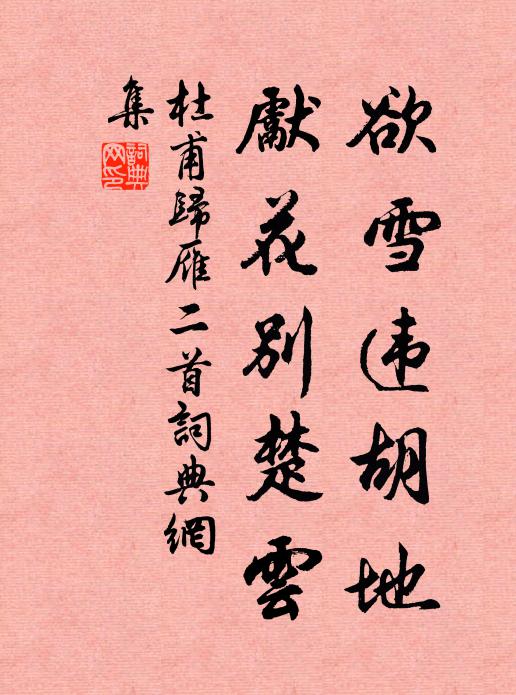 欲雪违胡地
獻花別楚雲
杜甫歸雁二首詞典網
集
詞典
网印